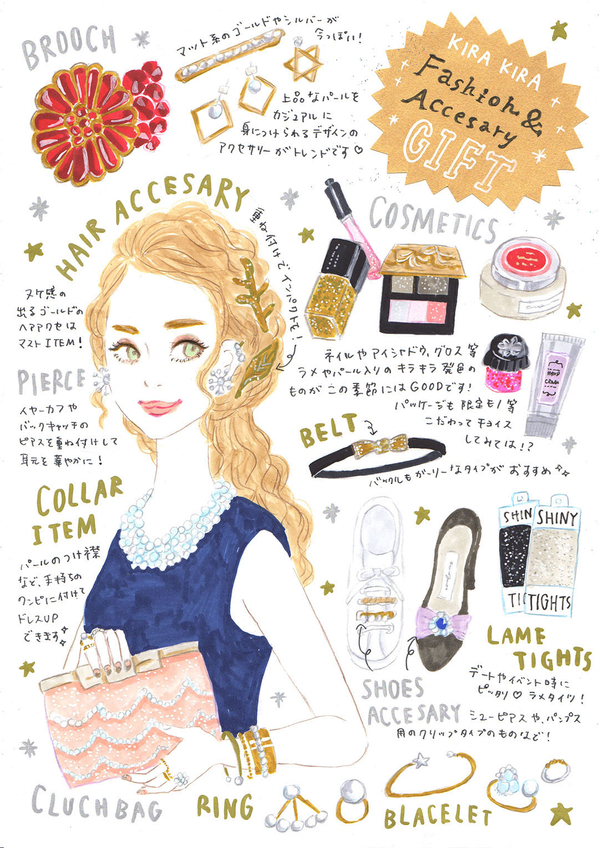 BROOCH
マット系のゴールドやシルバーが
今っぽい!
上品なパールを
カジュアルに
身につけられるデザインの
アクセサリーがトレンドです♡
KIRA KIRA
Fashion &
Accesary
GIFT
HAIR ACCESARY
ヌケ感の
出るゴールドの
ヘアアクセは
マストITEM!
重ね付けで、インパクト大!
PIERCE
イヤーカフや
バックキャッチの
ピアスを重ね付けして
耳元を華やかに!
COLLAR
ITEM
パールのつけ襟
など、手持ちの
ワンピに付けて
ドレスUP
できます
CLUCHBAG
COSMETICS
ネイルやアイシャドウ、グロス等
ラメやパール入りのキラキラ発色の
ものがこの季節にはGOODです!
パッケージも限定もの等
こだわってチョイス
してみては!?
BELT
バックルもガーリーなタイプがおすすめ
SHINY
TIGHTS
LAME
TIGHTS
デートやイベント時に
ピッタリ♡ラメタイツ!
SHOES
ACCESARY
シューピアスや、パンプス
用のクリップタイプのものなど!
RING
BLACELET